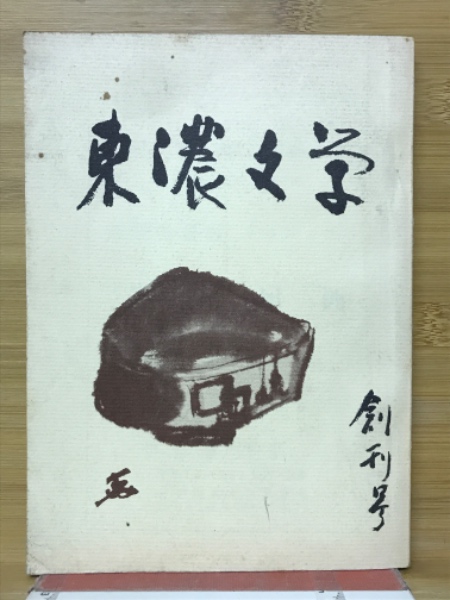 東濃文学
創刊号